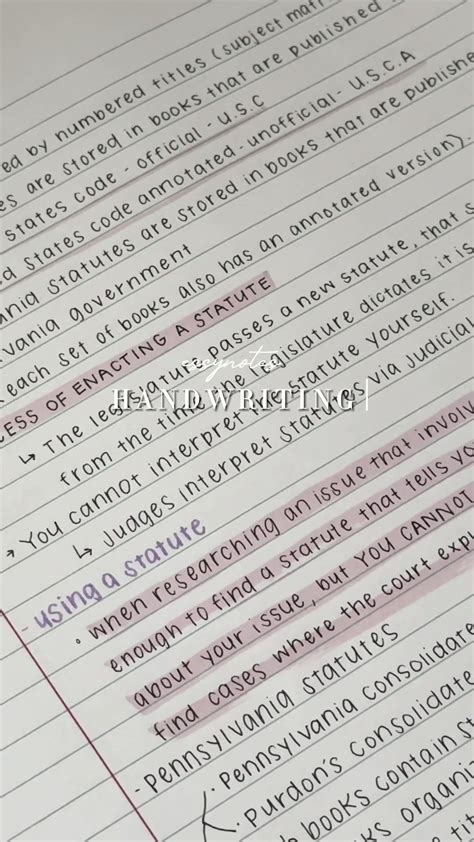 ed by numbered titles (subject mat
es are stored in books that are published
states code - official - U.S.C
d states code annotated - unofficial - U.S.C.A
ania statutes are stored in books that are publishe
vania government
each set of books also has an annotated version).
CESS OF ENACTING A STATUTE
↳ The legislature passes a new statute, that s
from the time the legislature dictates it is
→ You cannot interpret the statute yourself.
↳ Judges interpret statutes via judicia
easynotes
HANDWRITING|
- using a statute
• when researching an issue that involv
enough to find a statute that tells yo
about your issue, but you CANNOT
find cases where the court exp
- Pennsylvania statutes
• Pennsylvania consolidate
• Purdon's consolidate
books contain st
ks organi